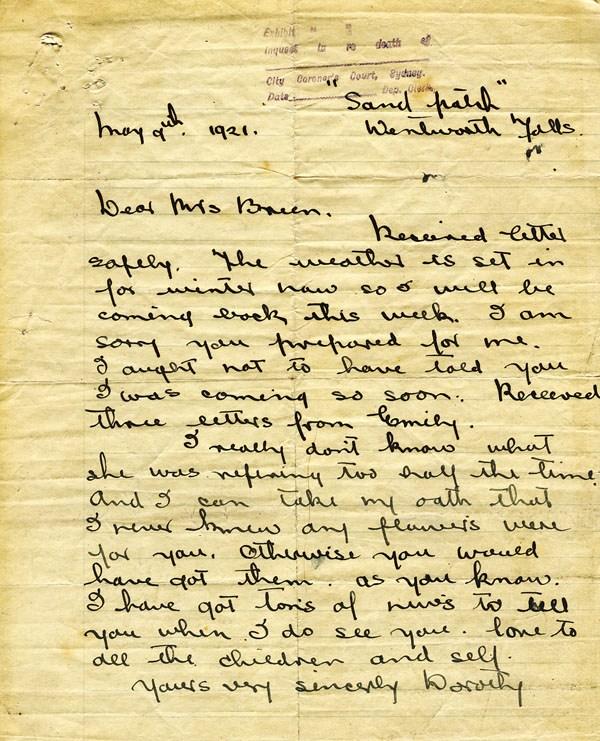 Exhibit " "
Inquest in re death of
City Coroner's Court, Sydney.
Date Dep. Clerk
"Sand patch"
May 9th. 1921. Wentworth Falls.
Dear Mrs Breen.
Received letter
safely. The weather is set in
for winter now so I will be
coming back this week. I am
sorry you prepared for me.
I aught not to have told you
I was coming so soon. Received
three letters from Emily.
I really don't know what
she was refering too half the time.
And I can take my oath that
I never knew any flowers were
for you. Otherwise you would
have got them. as you know.
I have got tons of news to tell
you when I do see you. love to
all the children and self.
Yours very sincerly Dorothy